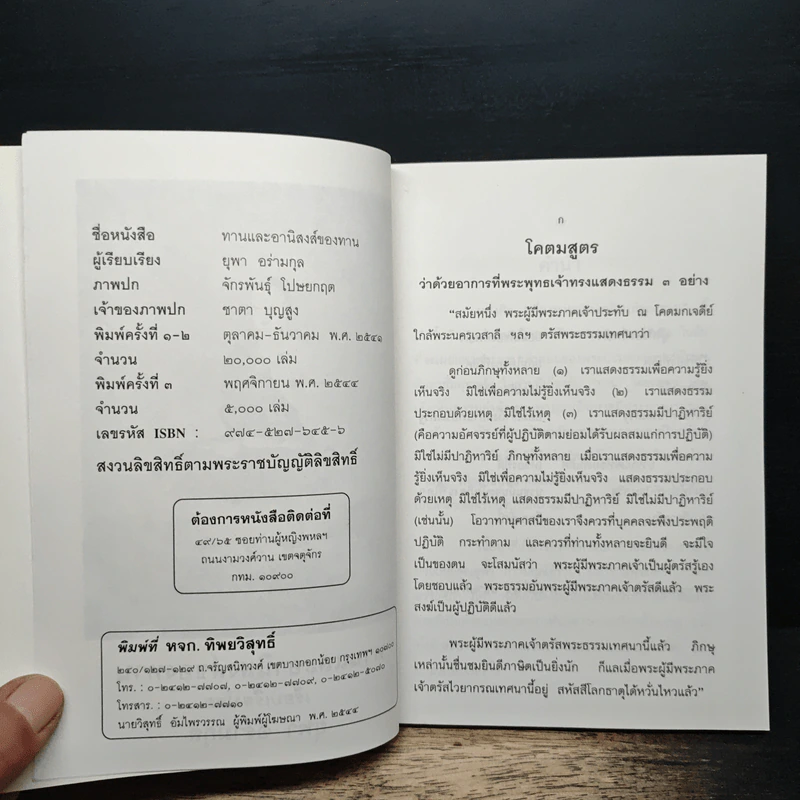 ชื่อหนังสือ ทานและอานิสงส์ของทาน
ผู้เรียบเรียง ยุพา อร่ามกุล
ภาพปก จักรพันธุ์ โปษยกฤต
เจ้าของภาพปก ชาตา บุญสูง
พิมพ์ครั้งที่ ๑-๒ ตุลาคม-ธันวาคม พ.ศ. ๒๕๔๑
จำนวน ๒๐,๐๐๐ เล่ม
พิมพ์ครั้งที่ ๓ พฤศจิกายน พ.ศ. ๒๕๔๔
จำนวน ๕,๐๐๐ เล่ม
เลขรหัส ISBN : ๙๗๔-๕๒๗-๖๔๕-๖
สงวนลิขสิทธิ์ตามพระราชบัญญัติลิขสิทธิ์
ต้องการหนังสือติดต่อที่
๔๙/๖๕ ซอยท่านผู้หญิงพหลฯ
ถนนงามวงศ์วาน เขตจตุจักร
กทม. ๑๐๙๐๐
พิมพ์ที่ หจก. ทิพยวิสุทธิ์
๒๔๐/๑๒๗-๑๒๙ ถ.จรัญสนิทวงศ์ เขตบางกอกน้อย กรุงเทพฯ ๑๐๗๐๐
โทร. : ๐-๒๔๑๒-๗๗๐๗, ๐-๒๔๑๒-๗๗๐๙, ๐-๒๔๑๒-๕๐๗๐
โทรสาร : ๐-๒๔๑๒-๗๗๑๐
นายวิสุทธิ์ อัมไพรวรรณ ผู้พิมพ์ผู้โฆษณา พ.ศ. ๒๕๔๔
ก
โคตมสูตร
ว่าด้วยอาการที่พระพุทธเจ้าทรงแสดงธรรม ๓ อย่าง
“สมัยหนึ่ง พระผู้มีพระภาคเจ้าประทับ ณ โคตมกเจดีย์
ใกล้พระนครเวสาลี ฯลฯ ตรัสพระธรรมเทศนาว่า
ดูก่อนภิกษุทั้งหลาย (๑) เราแสดงธรรมเพื่อความรู้ยิ่ง
เห็นจริง มิใช่เพื่อความไม่รู้ยิ่งเห็นจริง (๒) เราแสดงธรรม
ประกอบด้วยเหตุ มิใช่ไร้เหตุ (๓) เราแสดงธรรมมีปาฏิหาริย์
(คือความอัศจรรย์ที่ผู้ปฏิบัติตามย่อมได้รับผลสมแก่การปฏิบัติ)
มิใช่ไม่มีปาฏิหาริย์ ภิกษุทั้งหลาย เมื่อเราแสดงธรรมเพื่อความ
รู้ยิ่งเห็นจริง มิใช่เพื่อความไม่รู้ยิ่งเห็นจริง แสดงธรรมประกอบ
ด้วยเหตุ มิใช่ไร้เหตุ แสดงธรรมมีปาฏิหาริย์ มิใช่ไม่มีปาฏิหาริย์
(เช่นนั้น) โอวาทานุศาสนีของเราจึงควรที่บุคคลจะพึงประพฤติ
ปฏิบัติ กระทำตาม และควรที่ท่านทั้งหลายจะยินดี จะมีใจ
เป็นของตน จะโสมนัสว่า พระผู้มีพระภาคเจ้าเป็นผู้ตรัสรู้เอง
โดยชอบแล้ว พระธรรมอันพระผู้มีพระภาคเจ้าตรัสดีแล้ว พระ
สงฆ์เป็นผู้ปฏิบัติดีแล้ว
พระผู้มีพระภาคเจ้าตรัสพระธรรมเทศนานี้แล้ว ภิกษุ
เหล่านั้นชื่นชมยินดีภาษิตเป็นยิ่งนัก ก็แลเมื่อพระผู้มีพระภาค
เจ้าตรัสไวยากรณเทศนานี้อยู่ สหัสสีโลกธาตุได้หวั่นไหวแล้ว”